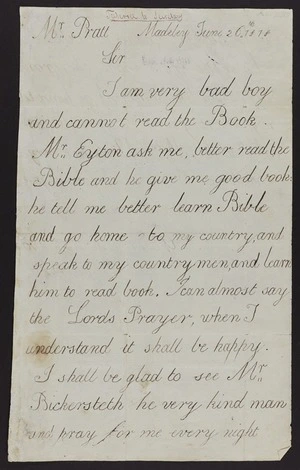 Mr. Pratt Madeley June 26th 1818
Sir
I am very bad boy
and cannot read the Book.
Mr. Eyton ask me, better read the
Bible and he give me good book
he tell me better learn Bible
and go home to my country, and
speak to my countrymen, and learn
him to read book. I can almost say
the Lords Prayer, when I
understand it shall be happy.
I shall be glad to see Mr.
Bickersteth he very kind man
and pray for me every night